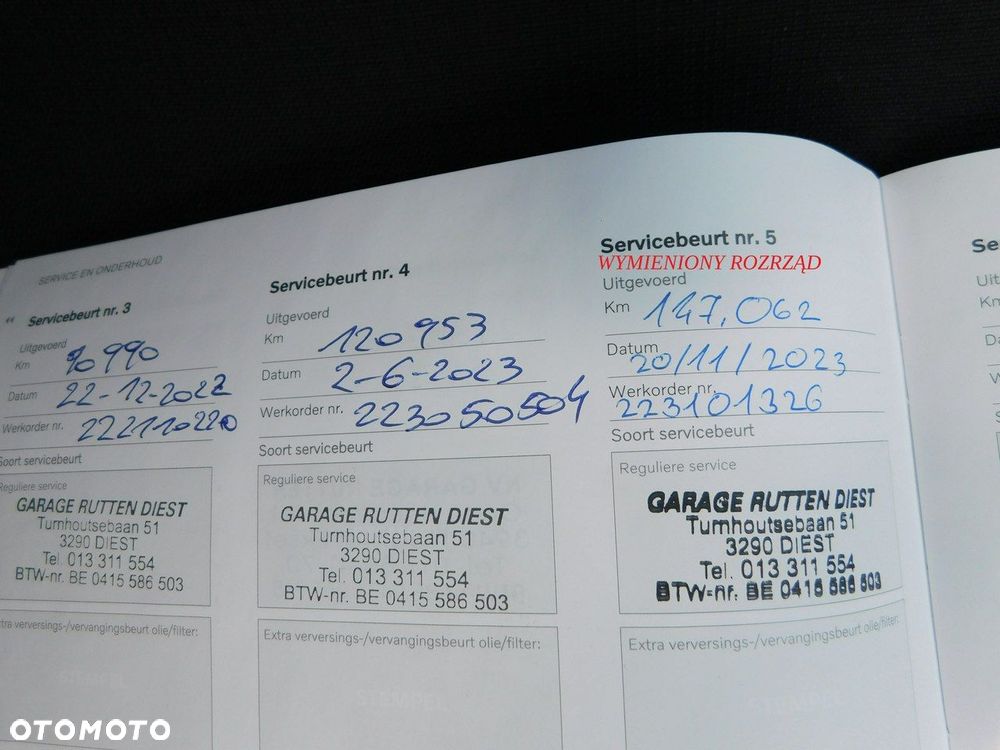 SERVICE EN ONDERHOUD
Servicebeurt nr. 3
Uitgevoerd
Km 90990
Datum 22-12-2022
Werkorder nr. 222110220
Soort servicebeurt
Reguliere service
GARAGE RUTTEN DIEST
Turnhoutsebaan 51
3290 DIEST
Tel. 013 311 554
BTW-nr. BE 0415 586 503
Extra verversings-/vervangingsbeurt olie/filter:
STEMPEL
Servicebeurt nr. 4
Uitgevoerd
Km 120953
Datum 2-6-2023
Werkorder nr. 223050504
Soort servicebeurt
Reguliere service
GARAGE RUTTEN DIEST
Turnhoutsebaan 51
3290 DIEST
Tel. 013 311 554
BTW-nr. BE 0415 586 503
Extra verversings-/vervangingsbeurt olie/filter:
STEMPEL
Servicebeurt nr. 5
WYMIENIONY ROZRZĄD
Uitgevoerd
Km 147,062
Datum 20/11/2023
Werkorder nr. 223101326
Soort servicebeurt
Reguliere service
GARAGE RUTTEN DIEST
Turnhoutsebaan 51
3290 DIEST
Tel. 013 311 554
BTW-nr. BE 0415 586 503
Extra verversings-/vervangingsbeurt olie/filter:
STEMPEL
OTOMOTO